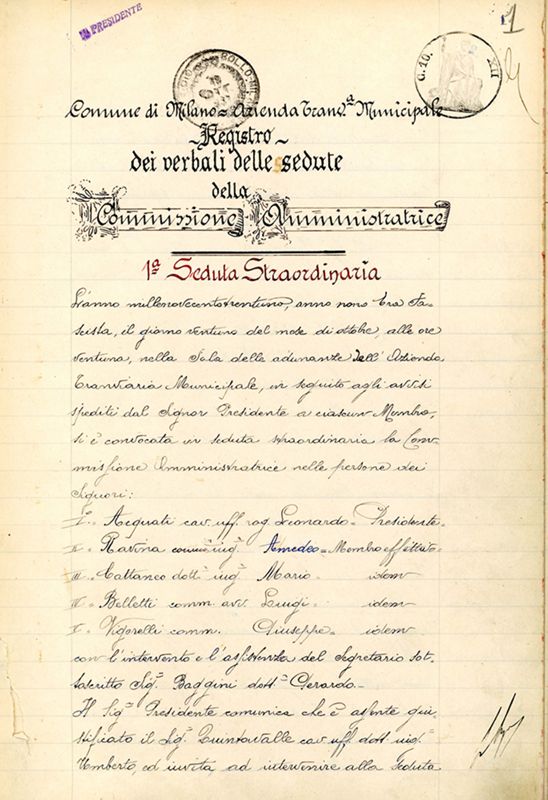 IL PRESIDENTE
1
BOLLO
G. 10.
XII
Comune di Milano = Azienda Tranv.ª Municipale
~ Registro ~
dei verbali delle sedute
della
Commissione Amministratrice
1ª Seduta Straordinaria
L'anno millenovecentotrentuno, anno nono Era Fa-
scista, il giorno ventuno del mese di ottobre, alle ore
ventuna, nella Sala delle adunanze dell'Azienda
Tranviaria Municipale, in seguito agli avvisi
spediti dal Signor Presidente a ciascun Membro,
si è convocata in seduta straordinaria la Com-
missione Amministratrice nelle persone dei
Signori:
I° = Acquati cav. uff. rag. Leonardo = Presidente =
II = Ravina comm. ing. Amedeo = Membro effettivo =
III = Cattaneo dott. ing. Mario = idem
IV = Belletti comm. avv. Luigi = idem
V = Vigorelli comm. Giuseppe = idem
con l'intervento e l'assistenza del Segretario sot-
toscritto Sig. Baggini dott. Gerardo =
Il Sig. Presidente comunica che è assente giu-
stificato il Sig. Quintavalle cav. uff. dott. ing.
Umberto, ed invita ad intervenire alla seduta